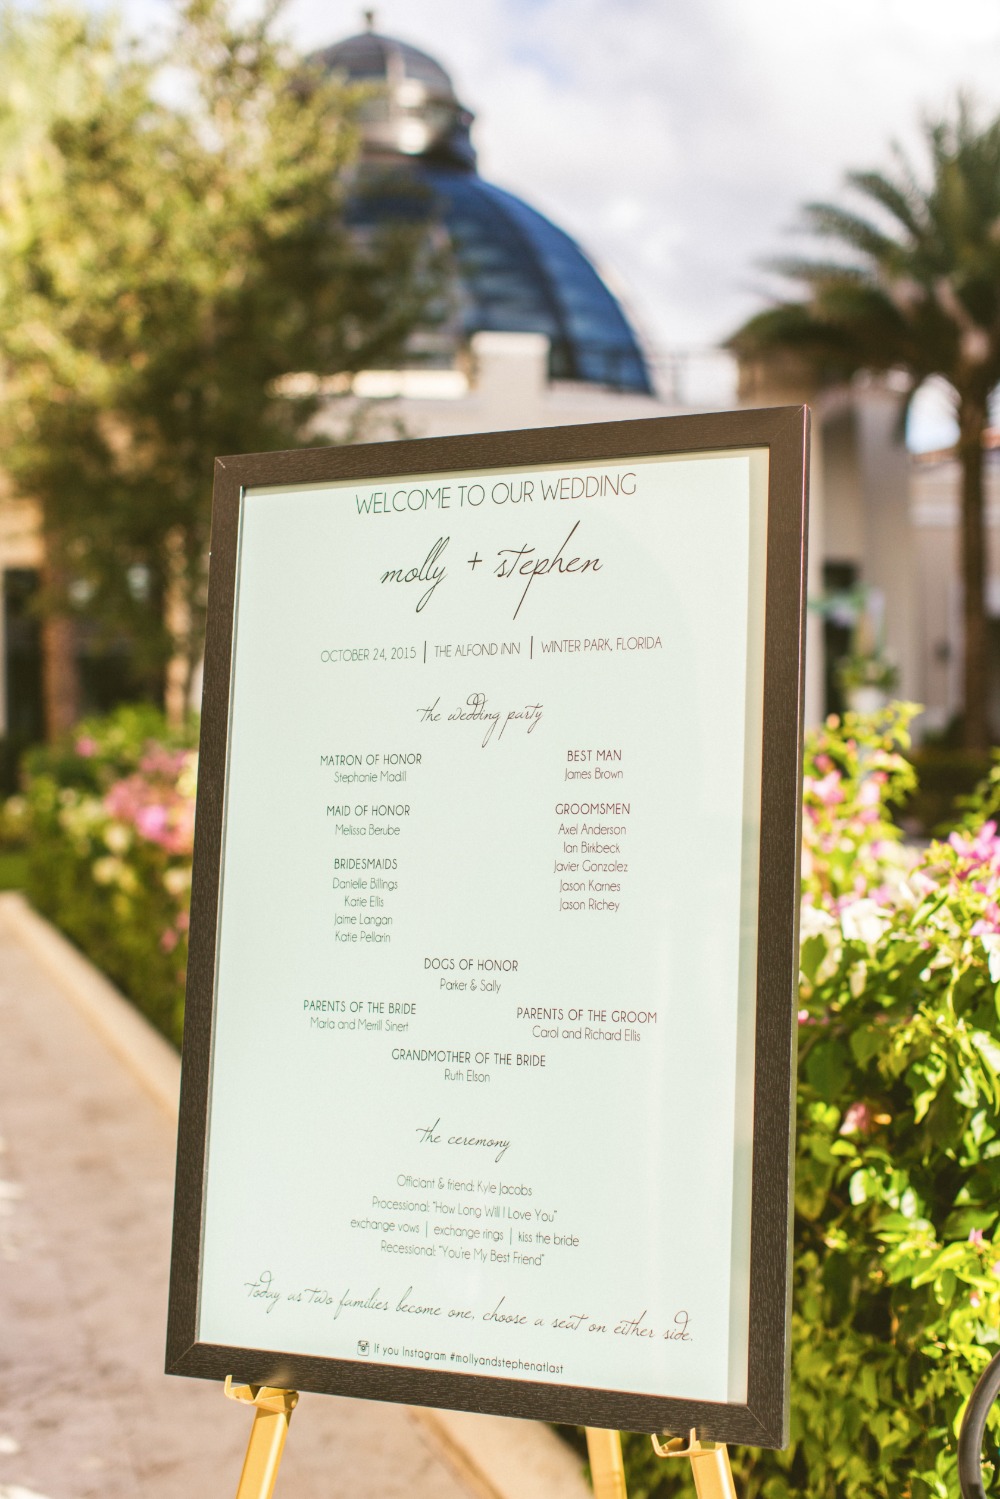 WELCOME TO OUR WEDDING
molly + stephen
OCTOBER 24, 2015 | THE ALFOND INN | WINTER PARK, FLORIDA
the wedding party
MATRON OF HONOR
Stephanie Madill
MAID OF HONOR
Melissa Berube
BRIDESMAIDS
Danielle Billings
Katie Ellis
Jaime Langan
Katie Pellarin
BEST MAN
James Brown
GROOMSMEN
Axel Anderson
Ian Birkbeck
Javier Gonzalez
Jason Karnes
Jason Richey
DOGS OF HONOR
Parker & Sally
PARENTS OF THE BRIDE
Maria and Merrill Sinert
PARENTS OF THE GROOM
Carol and Richard Ellis
GRANDMOTHER OF THE BRIDE
Ruth Elson
the ceremony
Officiant & friend: Kyle Jacobs
Processional: "How Long Will I Love You"
exchange vows | exchange rings | kiss the bride
Recessional: "You're My Best Friend"
Today as two families become one, choose a seat on either side.
If you Instagram #mollyandstephenatlast